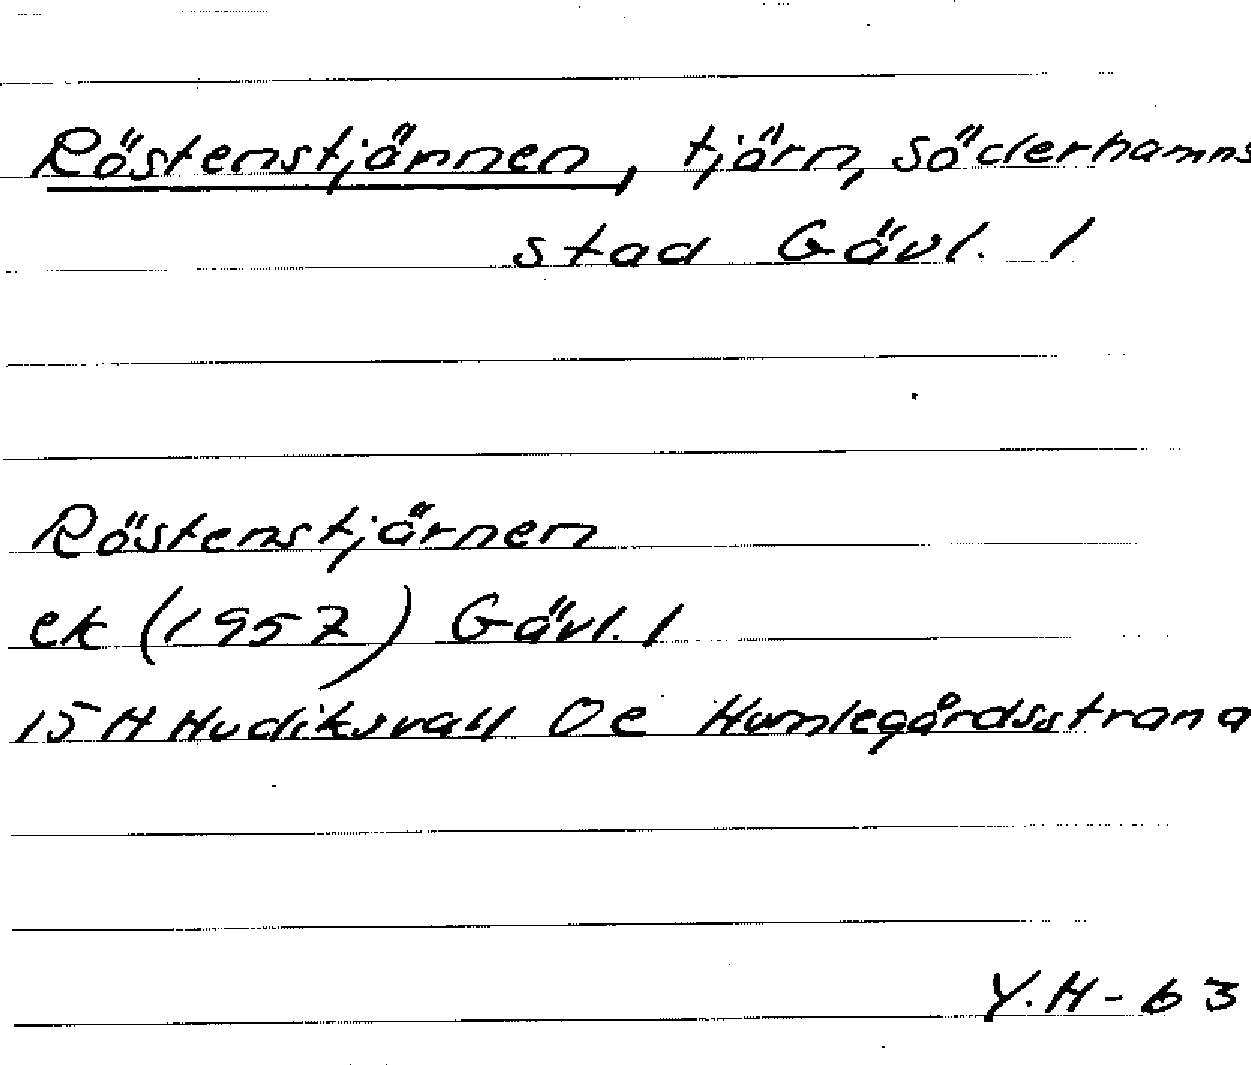 Röstenstjärnen, tjärn, Söderhamns
stad Gävl. l
Röstenstjärnen
ek (1957) Gävl. l
15 H Hudiksvall 0e Humlegårdsstrand
Y.H-63